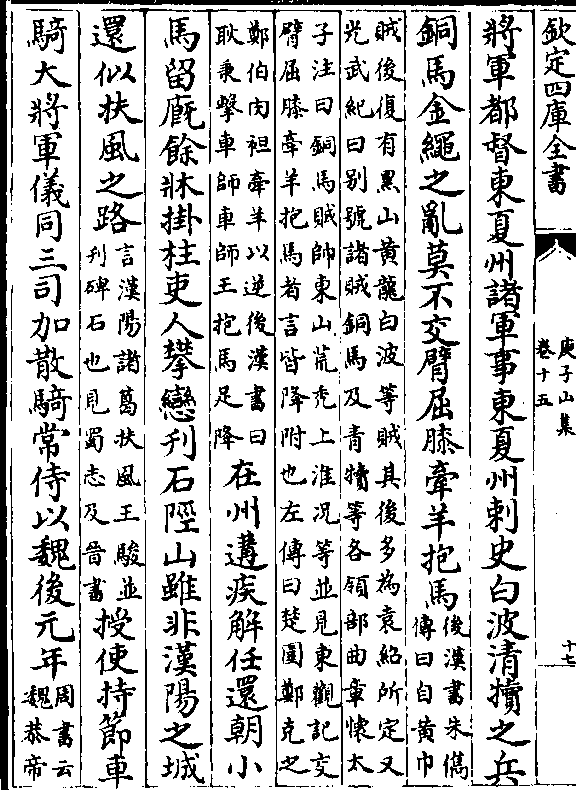 欽定四庫全書
庾子山集
卷十五
十七
將軍都督東夏州諸軍事東夏州刺史白波清犢之兵
銅馬金繩之亂莫不交臂屈膝牽羊抱馬
後漢書朱儁
傳曰自黃巾
賊後復有黑山黃龍白波等賊其後多為袁紹所定又
光武紀曰别號諸賊銅馬及青犢等各領部曲章懷太
子注曰銅馬賊帥東山荒禿上淮况等並見東觀記交
臂屈膝牽羊抱馬者言皆降附也左傳曰楚圍鄭克之
鄭伯肉袒牽羊以逆後漢書曰
耿秉擊車師車師王抱馬足降
在州遘疾解任還朝小
馬留廐餘牀掛柱吏人攀戀刋石陘山雖非漢陽之城
還似扶風之路
言漢陽諸葛扶風王駿並
刋碑石也見蜀志及晉書
授使持節車
騎大將軍儀同三司加散騎常侍以魏後元年
周書云
魏恭帝